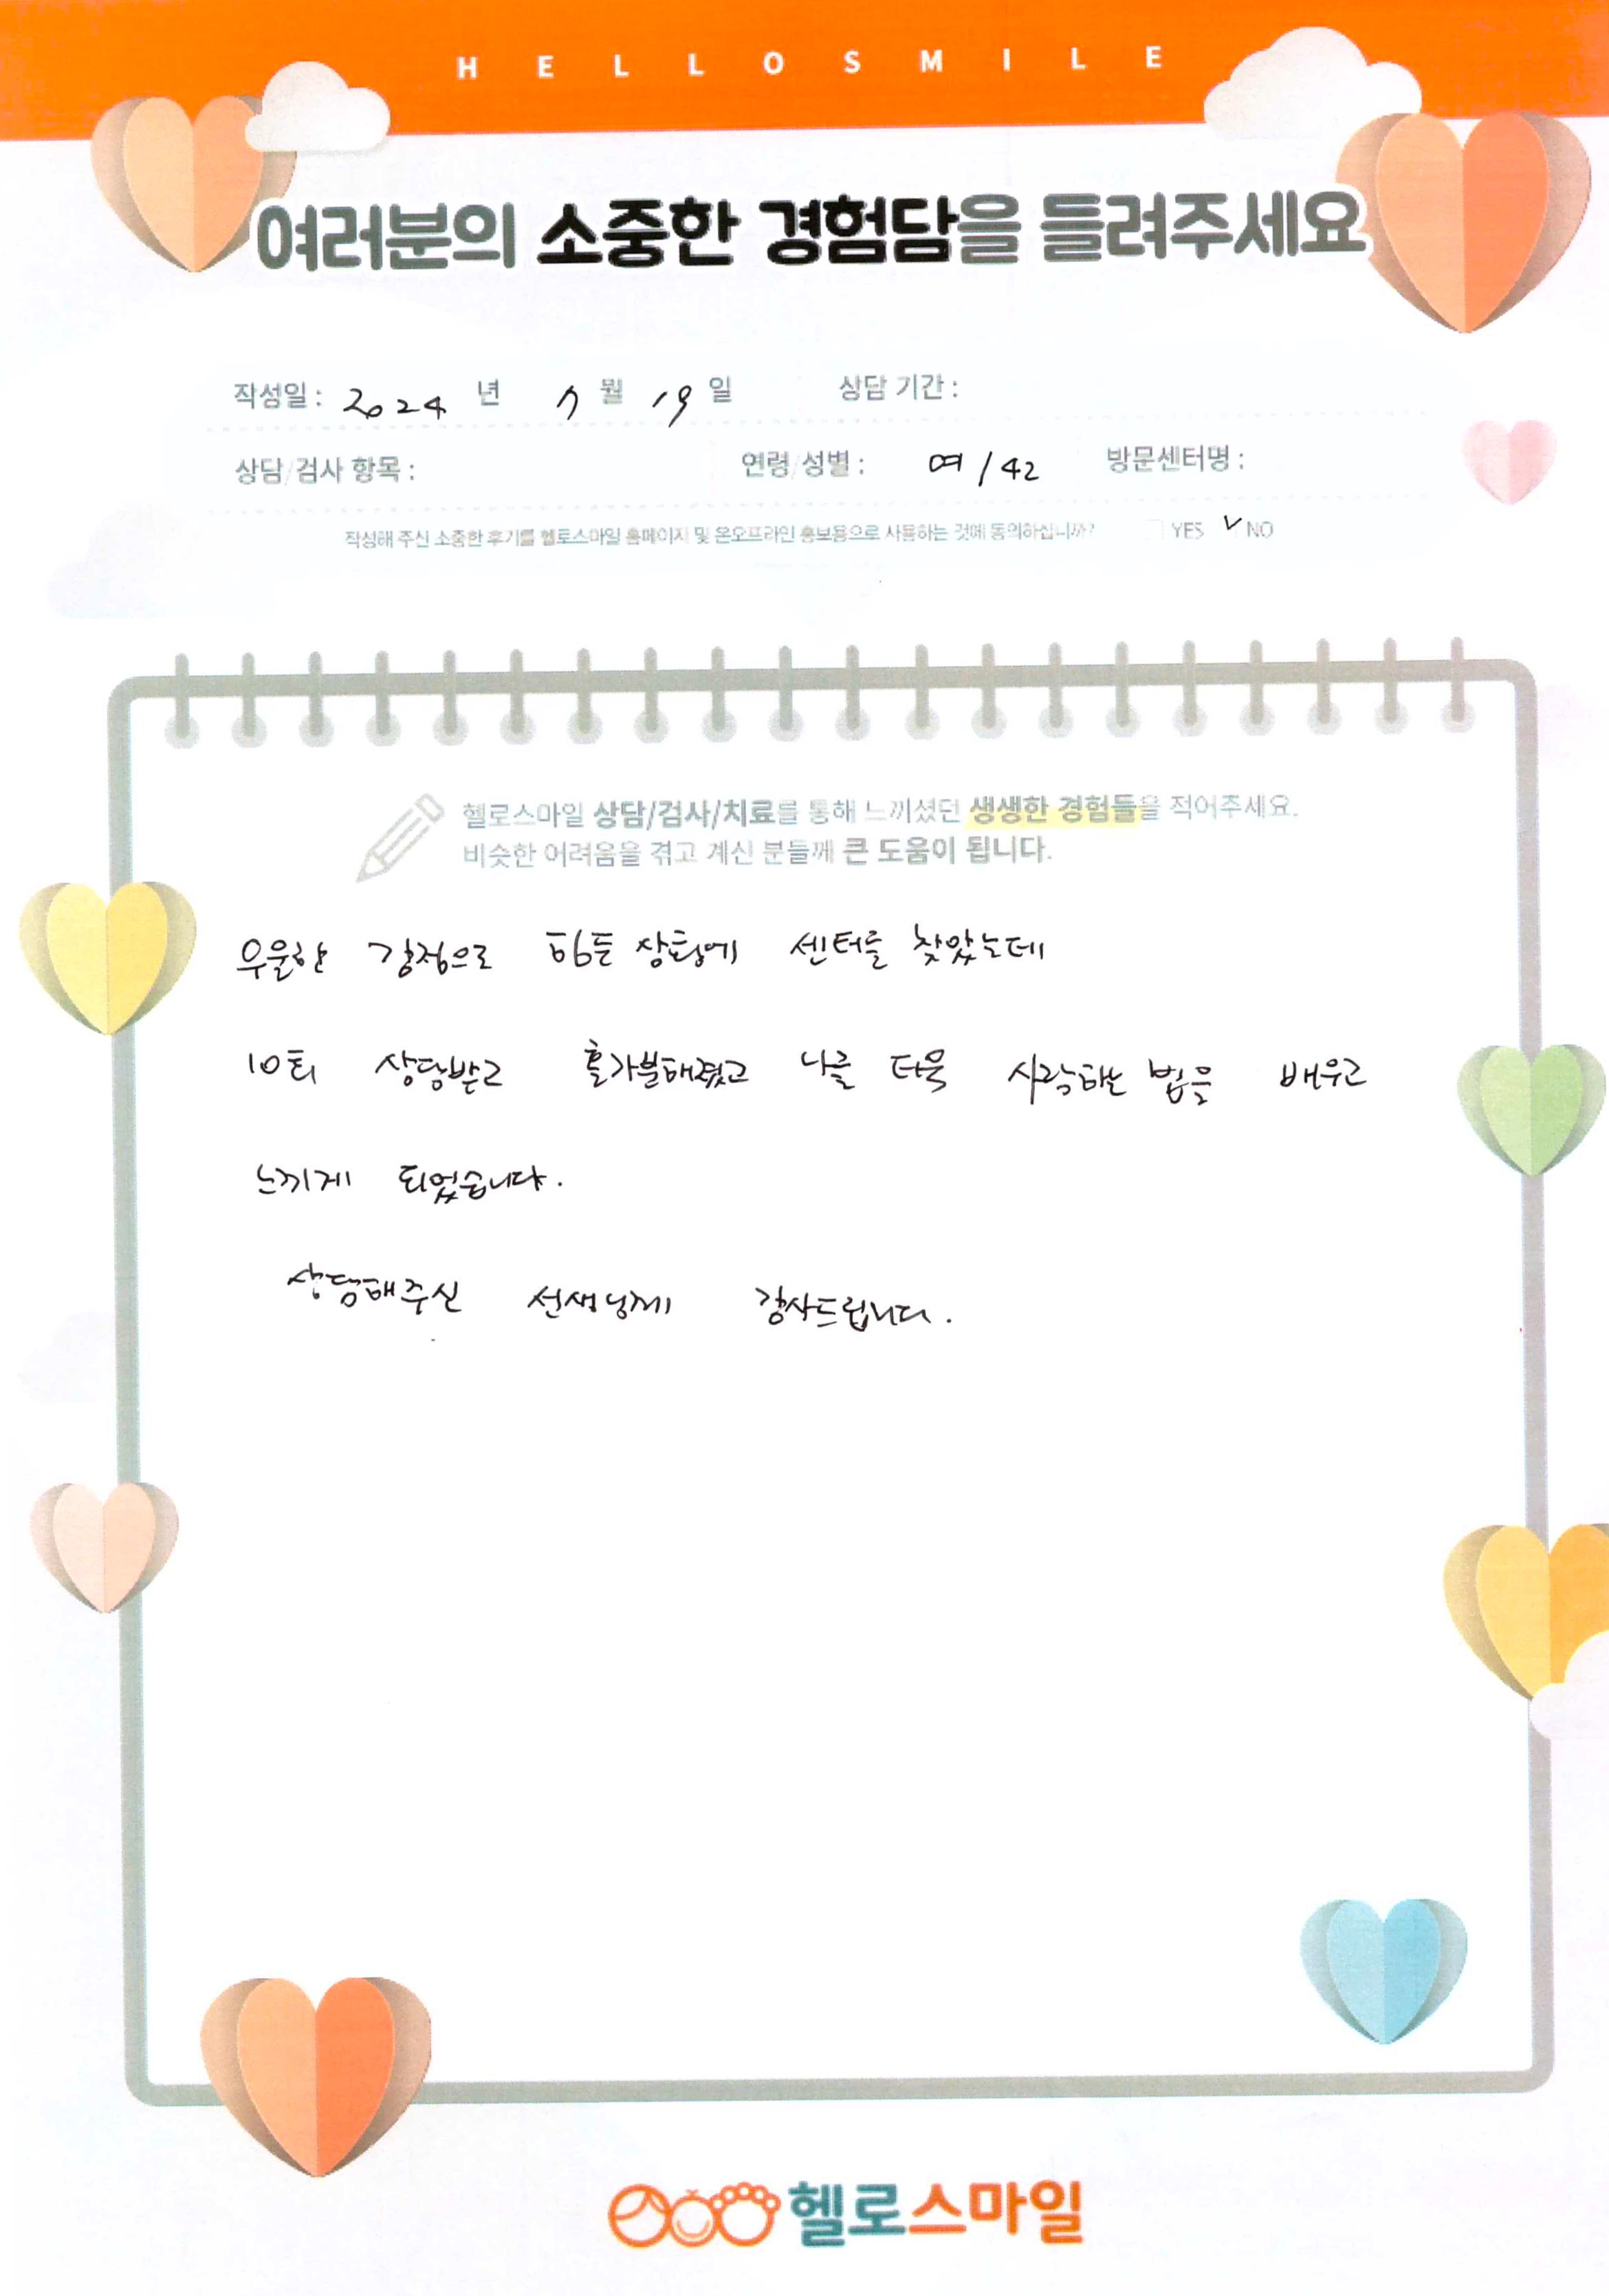 HELLOSMILE
여러분의 소중한 경험담을 들려주세요
작성일 : 2024 년 7 월 19 일 상담 기간 :
상담/검사 항목 : 연령/성별 : 여/42 방문센터명 :
작성해 주신 소중한 후기를 헬로스마일 홈페이지 및 온오프라인 홍보용으로 사용하는 것에 동의하십니까? YES ✓ NO
헬로스마일 상담/검사/치료를 통해 느끼셨던 생생한 경험들을 적어주세요.
비슷한 어려움을 겪고 계신 분들께 큰 도움이 됩니다.
우울한 감정으로 힘든 상황에 센터를 찾았는데
10회 상담받고 홀가분해졌고 나를 더욱 사랑하는 법을 배우고
느끼게 되었습니다.
상담해주신 선생님께 감사드립니다.
헬로스마일